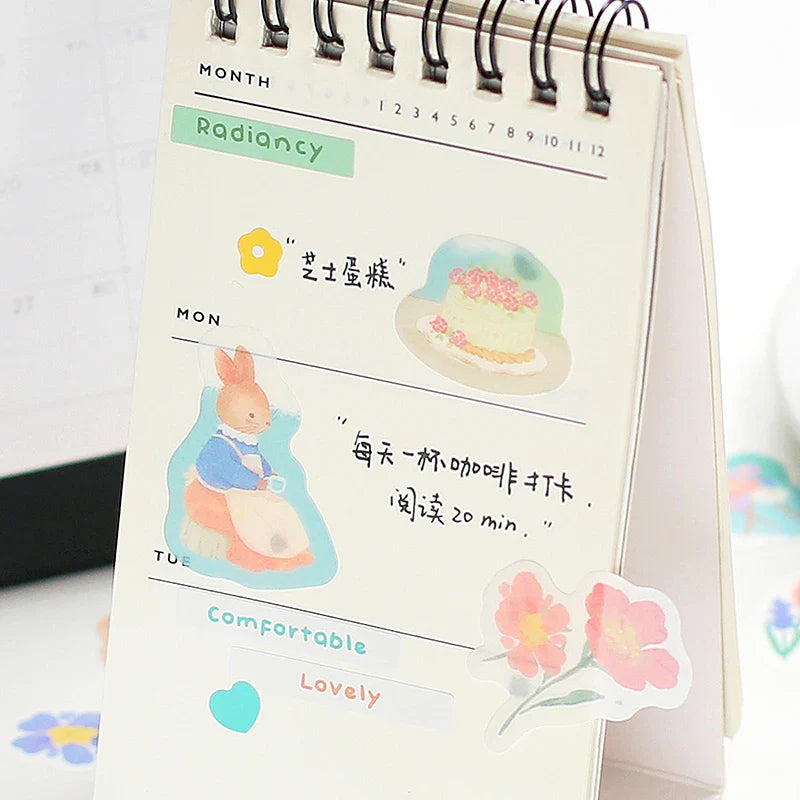 MONTH
1 2 3 4 5 6 7 8 9 10 11 12
Radiancy
"芝士蛋糕"
MON
"每天一杯咖啡打卡.
阅读20 min."
TUE
Comfortable
Lovely